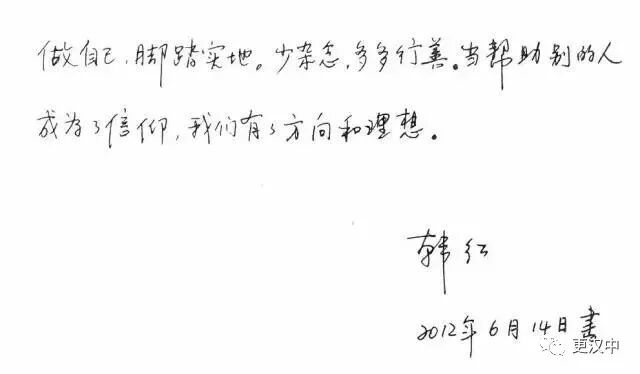 做自己，脚踏实地。少杂念，多多行善。当帮助别的人
成为了信仰，我们有了方向和理想。
韩红
2012年6月14日书
更汉中